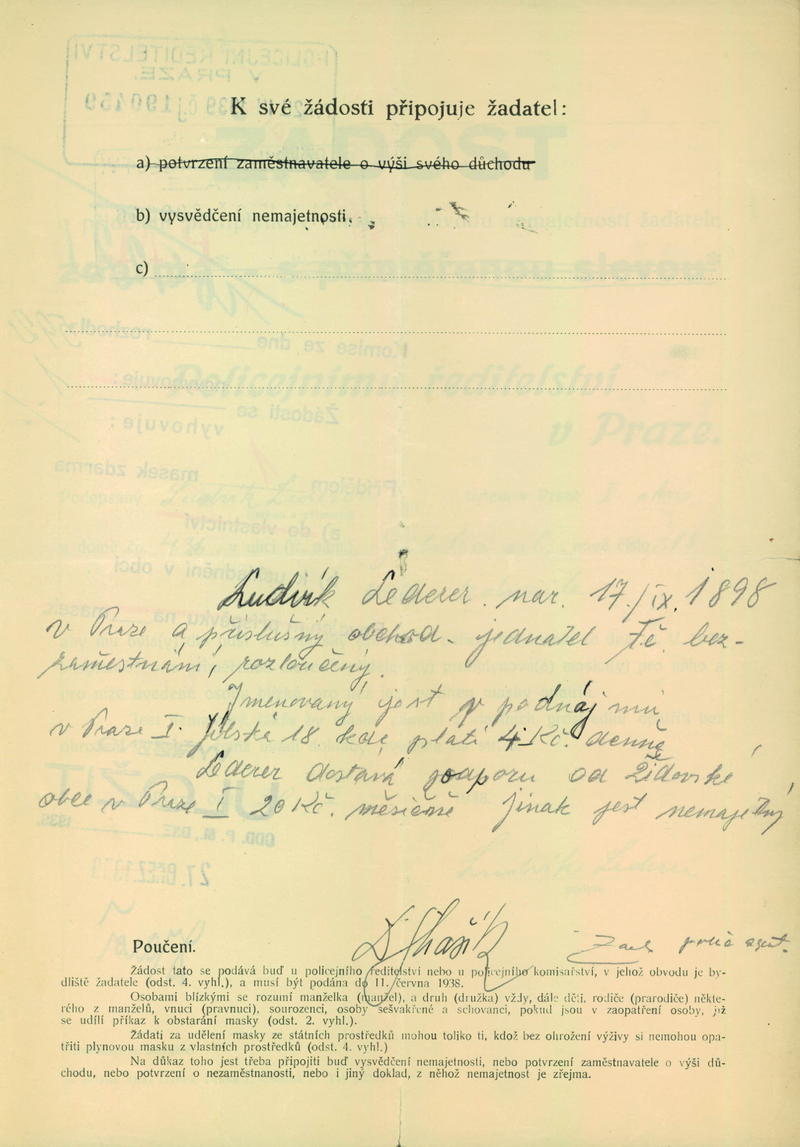 K své žádosti připojuje žadatel:
a) potvrzení zaměstnavatele o výši svého důchodu
b) vysvědčení nemajetnosti.
c)
Ludvík Lederer. nar. 17/IX. 1898
v Praze a příslušný obchod. jednatel bez-
zaměstnání, rozloučený.
Jmenovaný jest v podnájmu
v Praze I. 18. kde platí 4 Kč. denně
Lederer dostává podporu od židovské
obce v Praze I 20 Kč. měsíčně jinak jest nemajetný
Poučení.
Žádost tato se podává buď u policejního ředitelství nebo u policejního komisařství, v jehož obvodu je by-
dliště žadatele (odst. 4. vyhl.), a musí být podána do 11. června 1938.
Osobami blízkými se rozumí manželka (manžel), a druh (družka) vždy, dále děti, rodiče (prarodiče) někte-
rého z manželů, vnuci (pravnuci), sourozenci, osoby sešvakřené a schovanci, pokud jsou v zaopatření osoby, jíž
se udílí příkaz k obstarání masky (odst. 2. vyhl.).
Žádati za udělení masky ze státních prostředků mohou toliko ti, kdož bez ohrožení výživy si nemohou opa-
třiti plynovou masku z vlastních prostředků (odst. 4. vyhl.)
Na důkaz toho jest třeba připojiti buď vysvědčení nemajetnosti, nebo potvrzení zaměstnavatele o výši dů-
chodu, nebo potvrzení o nezaměstnanosti, nebo i jiný doklad, z něhož nemajetnost je zřejma.